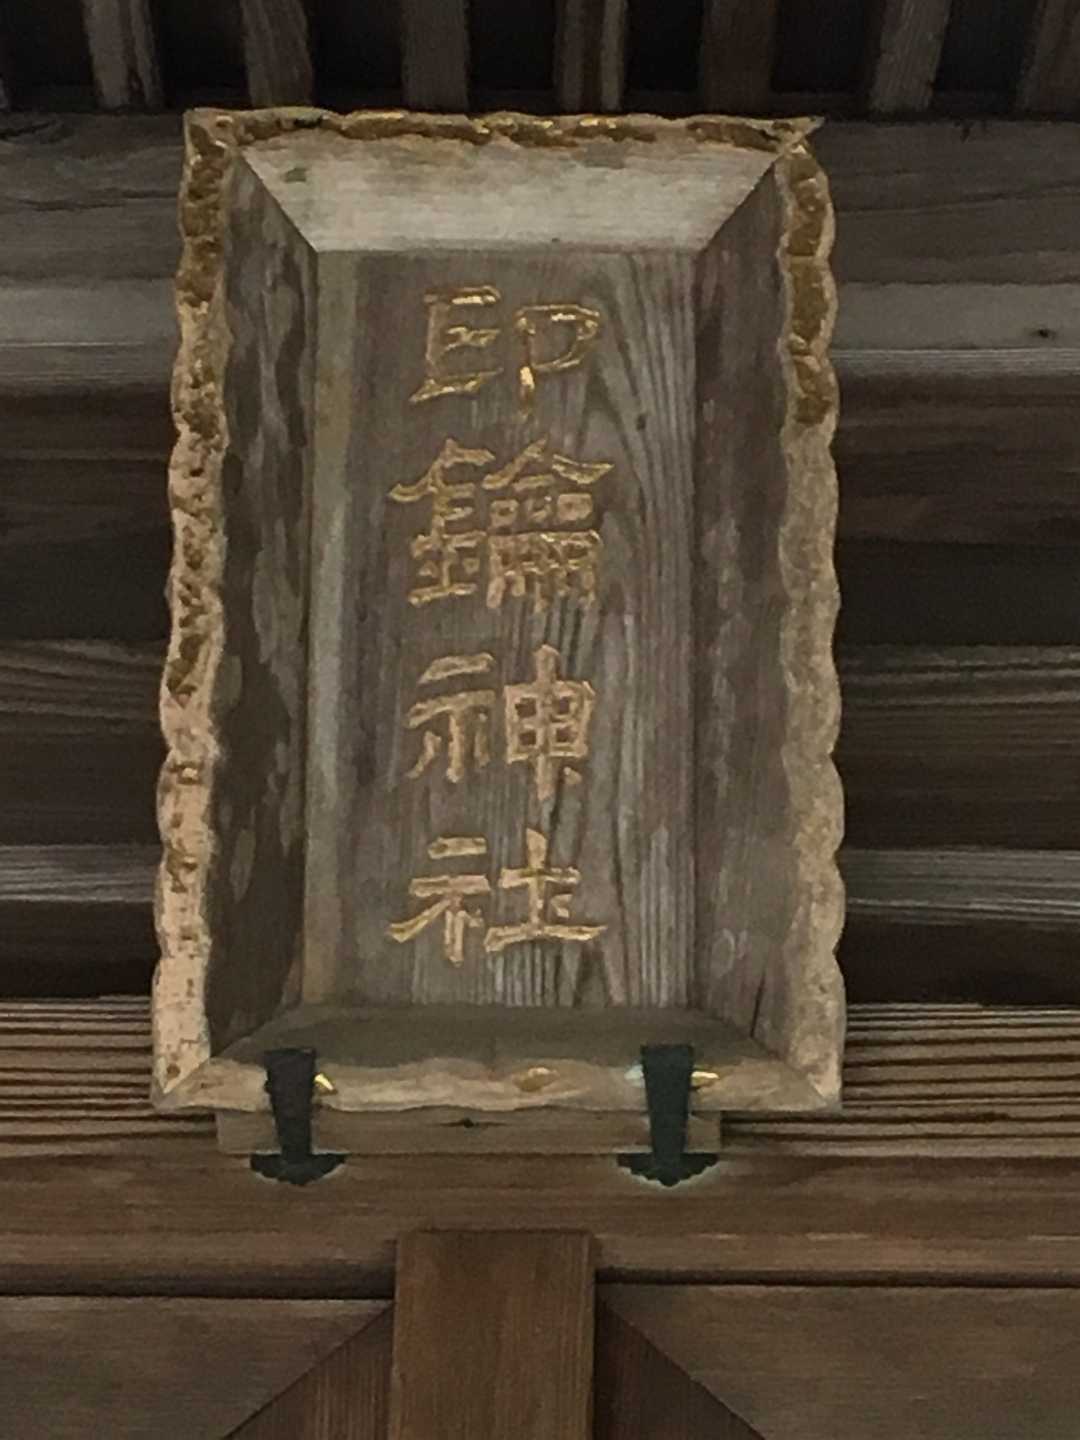 印鑰神社